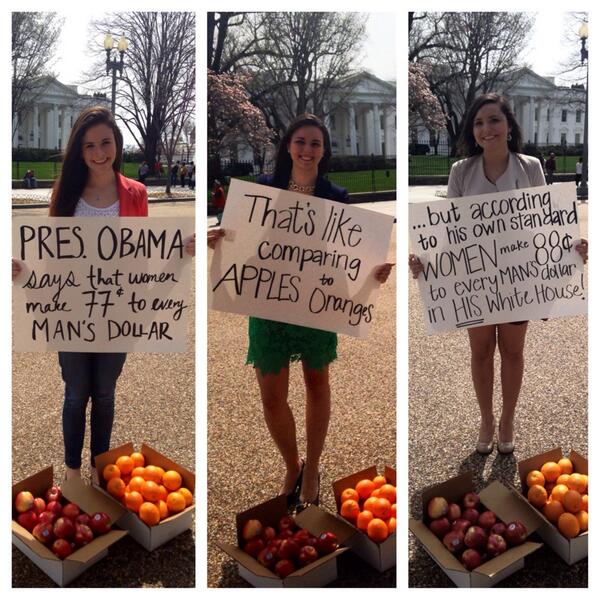 PRES. OBAMA
says that women
make 77¢ to every
MAN'S DOLLAR
That's like
comparing
APPLES to
Oranges
...but according
to his own standard
WOMEN make 88¢
to every MAN'S dollar
in HIS White House!